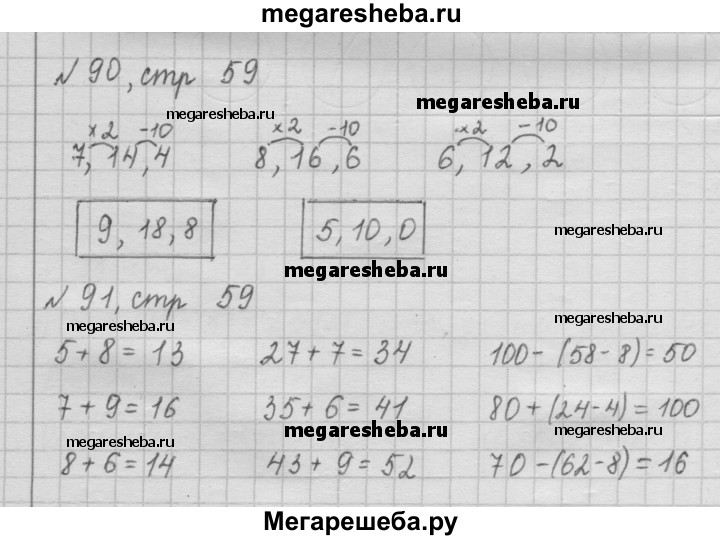 megaresheba.ru
№ 90, стр 59
megaresheba.ru megaresheba.ru
×2 -10 ×2 -10 ×2 -10
7, 14, 4 8, 16, 6 6, 12, 2
megaresheba.ru
9, 18, 8 5, 10, 0 megaresheba.ru
megaresheba.ru
№ 91, стр 59
megaresheba.ru megaresheba.ru
5 + 8 = 13 27 + 7 = 34 100 - (58 - 8) = 50
7 + 9 = 16 35 + 6 = 41 80 + (24 - 4) = 100
megaresheba.ru megaresheba.ru megaresheba.ru
8 + 6 = 14 43 + 9 = 52 70 - (62 - 8) = 16
Мегарешеба.ру